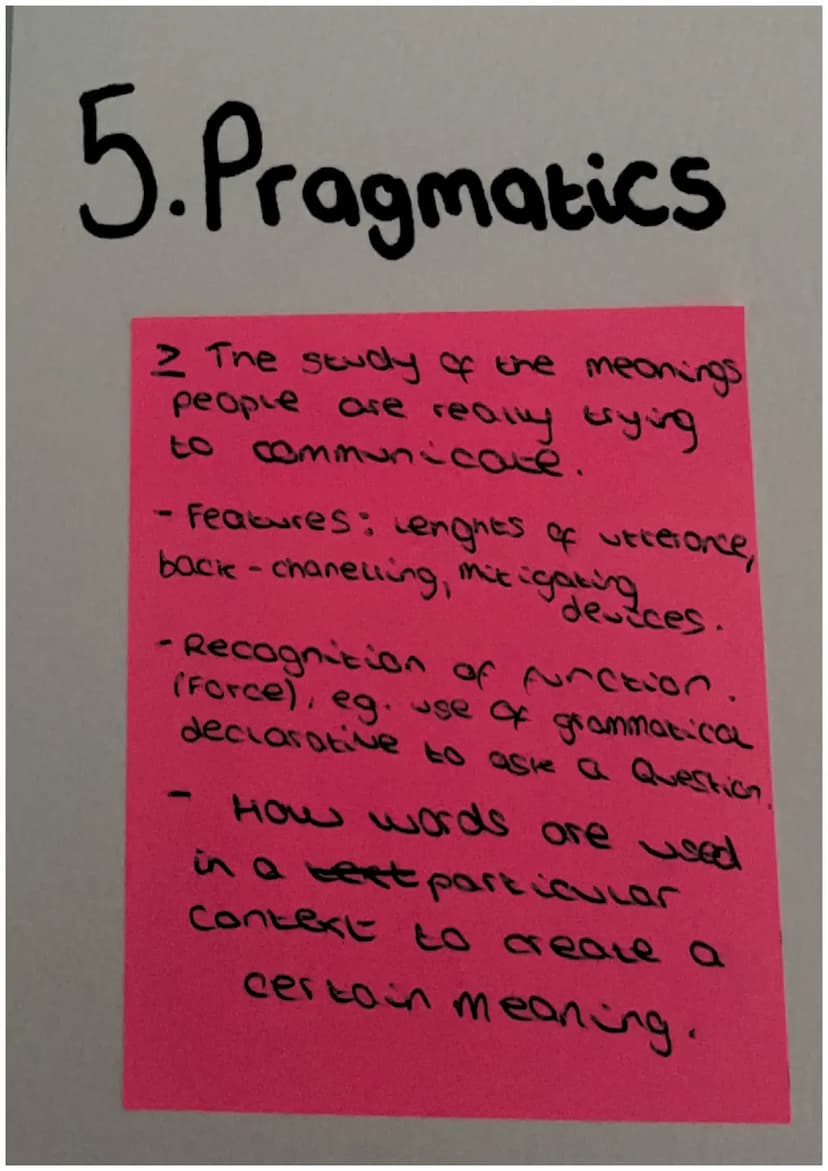 5. Pragmatics
≥ The study of the meanings
people are really trying
to communicate.
- Features: Lenghts of utterance,
back-chanelling, mitigating
devices.
- Recognition of function.
(Force), eg. use of grammatical
declarative to ask a Question.
- How words are used
in a text particular
context to create a
certain meaning.